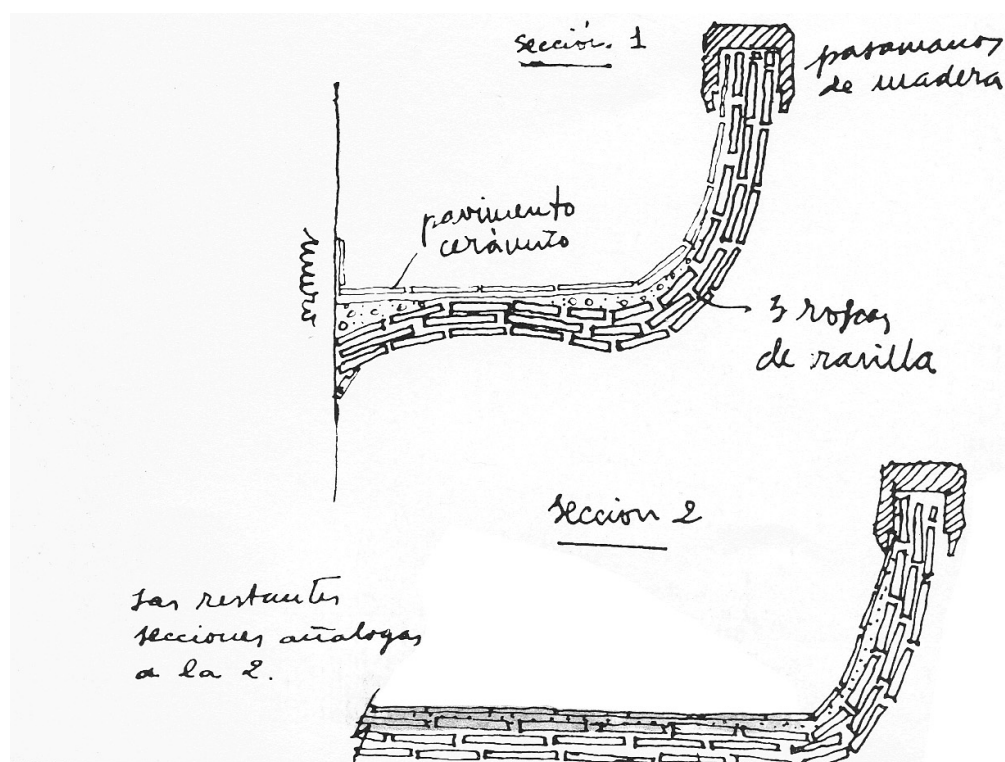 sección. 1
pasamanos
de madera
pavimento
cerámito
muro
3 roscas
de rasilla
sección 2
Las restantes
secciones análogas
a la 2.